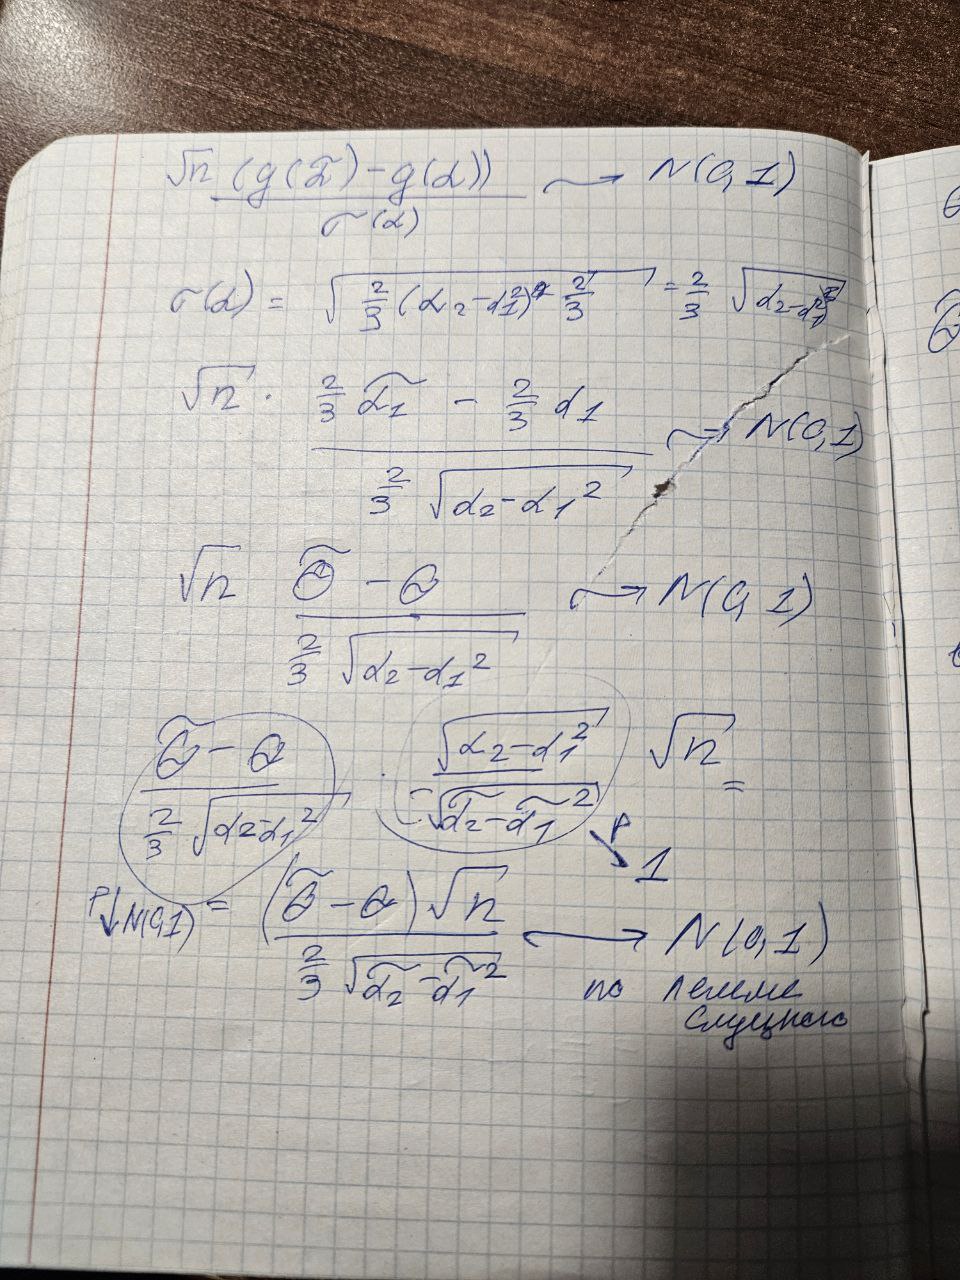 √n (g(α̃) − g(α)) / σ(α) ⟶ N(0, 1)
σ(α) = √(2/3 (α₂ − α₁²) 2/3) = 2/3 √(α₂ − α₁²)
√n · (2/3 α̃₁ − 2/3 α₁) / (2/3 √(α₂ − α₁²)) ⟶ N(0, 1)
√n (θ̃ − θ) / (2/3 √(α₂ − α₁²)) ⟶ N(0, 1)
(θ̃ − θ) / (2/3 √(α₂ − α₁²)) · √(α₂ − α₁²) / √(α̃₂ − α̃₁²) √n =
P ↘ 1
P ↓ N(0,1)
= (θ̃ − θ) √n / (2/3 √(α̃₂ − α̃₁²)) ⟶ N(0, 1)
по лемме
Слуцкого